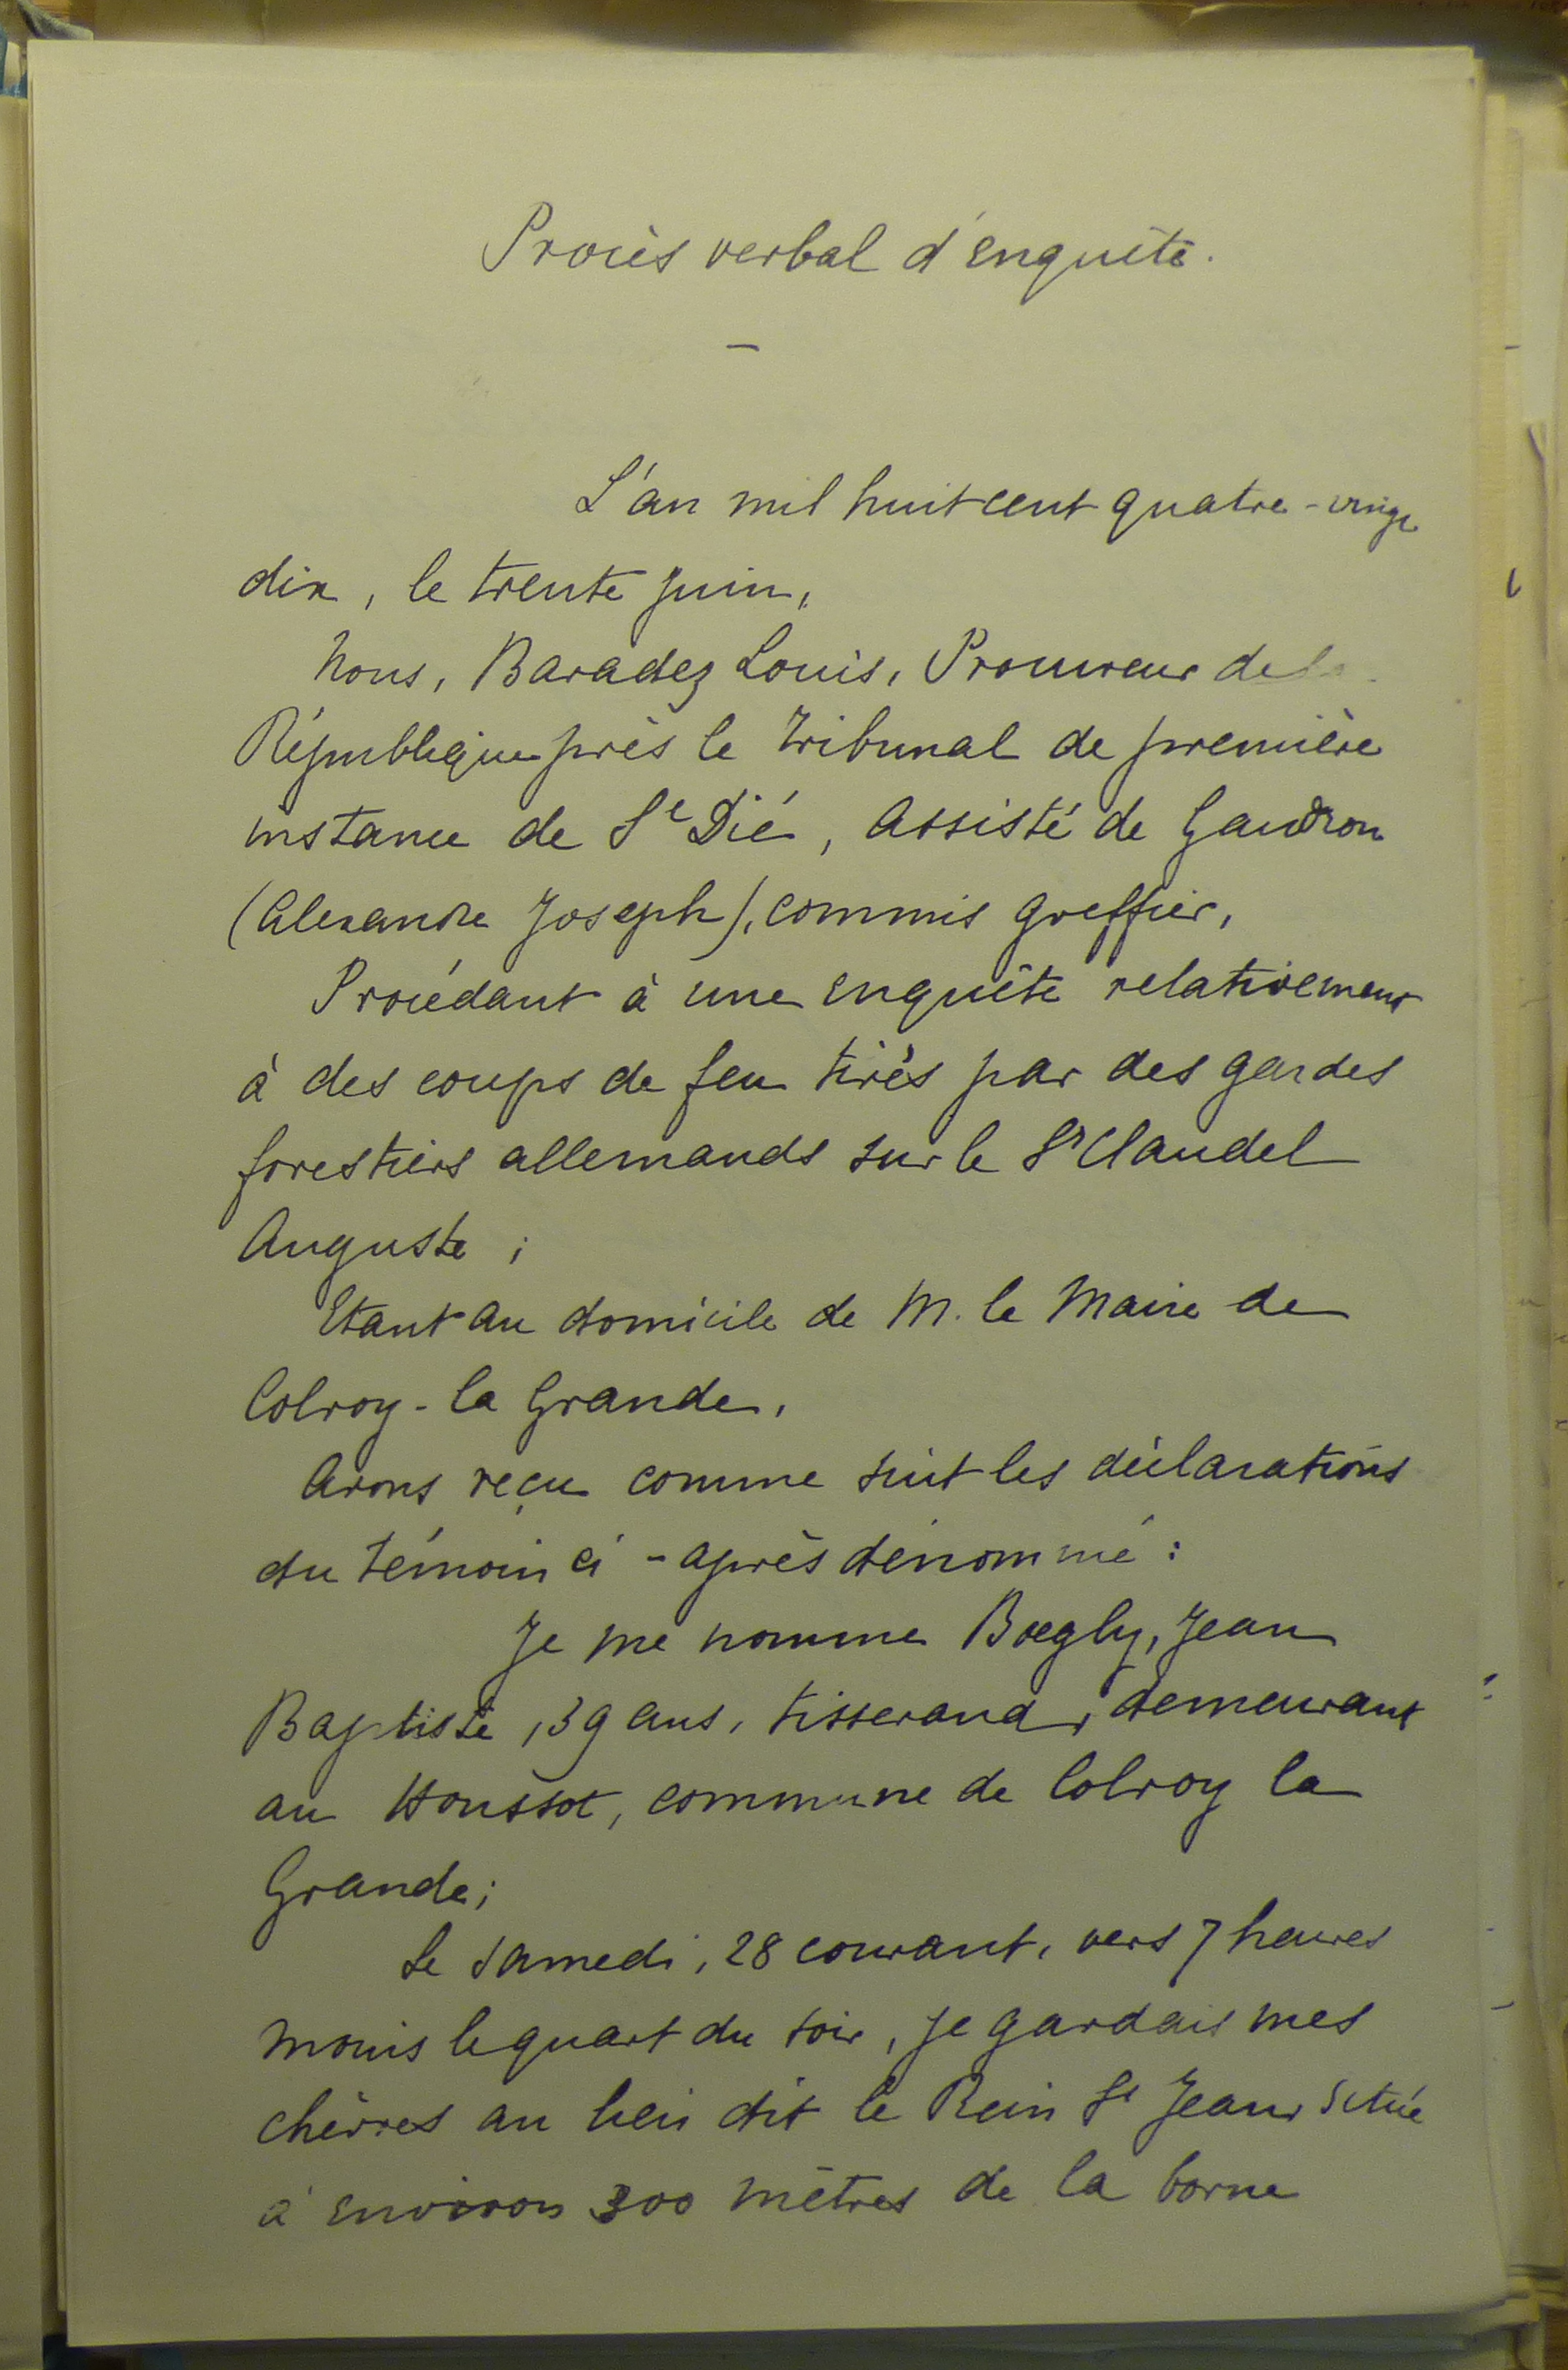 Procès verbal d'enquête.
—
L'an mil huit cent quatre-vingt
dix, le trente juin,
Nous, Baradez Louis, Procureur de la
République près le Tribunal de première
instance de St Dié, assisté de Gaudron
(Alexandre Joseph), commis greffier,
Procédant à une enquête relativement
à des coups de feu tirés par des gardes
forestiers allemands sur le Sr Claudel
Auguste ;
Etant au domicile de M. le Maire de
Colroy-la Grande,
Avons reçu comme suit les déclarations
du témoin ci-après dénommé :
Je me nomme Bœgly, Jean
Baptiste, 39 ans, tisserand, demeurant
au Houssot, commune de Colroy la
Grande ;
Le samedi, 28 courant, vers 7 heures
moins le quart du soir, je gardais mes
chèvres au lieu dit le Rein St Jean, situé
à environ 300 mètres de la borne